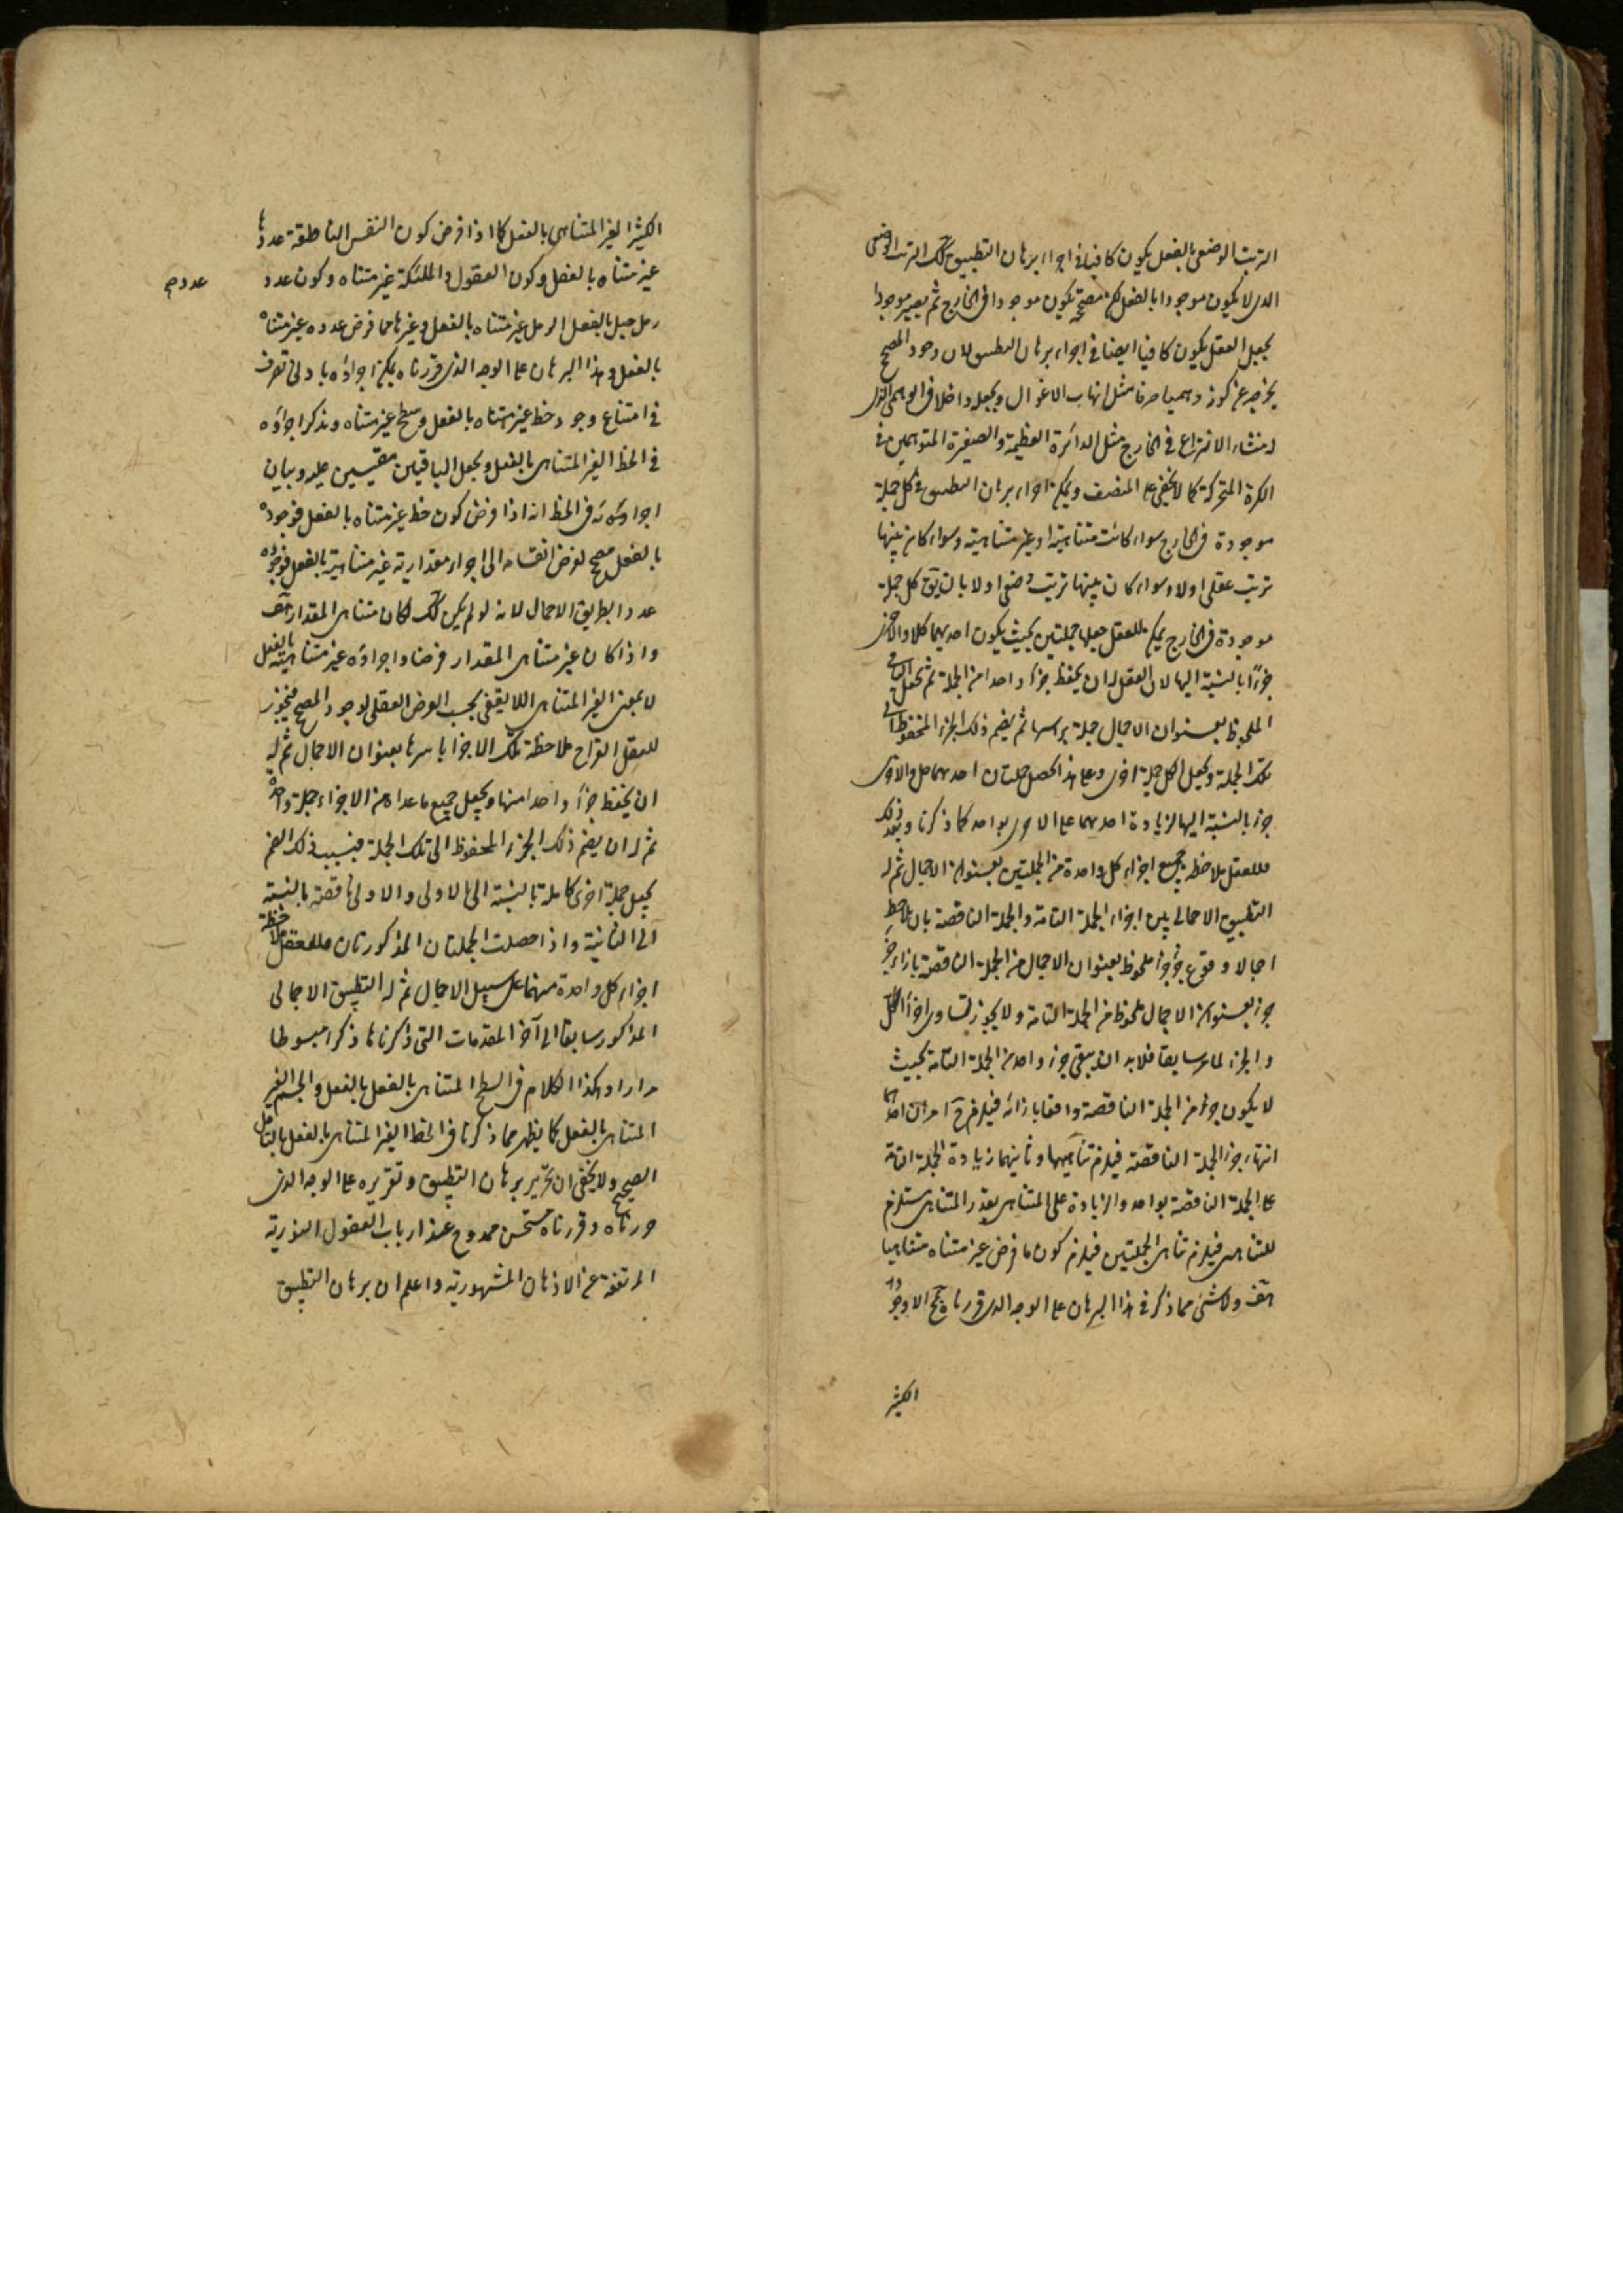 الترتيب الوضعى بالفعل يكون كافيا فى اجراء برهان التطبيق كك الترتيب الوضعى
الذى لا يكون موجودا بالفعل لكن مصححه يكون موجودا فى الخارج ثم يصير موجودا
بجعل العقل يكون كافيا ايضا فى اجراء برهان التطبيق لان وجود المصحح
يخرجه عن كونه وهميا صرفا مثل انياب الاغوال ويجعله داخلا فى الوهمى الذى
له منشاء الانتزاع فى الخارج مثل الدائرة العظيمة والصغيرة المتوهمين فى
الكرة المتحركة كما لا يخفى على المنصف ويمكن اجراء برهان التطبيق فى كل جملة
موجودة فى الخارج سواء كانت متناهية او غير متناهية وسواء كان بينها
ترتيب عقلى او لا وسواء كان بينها ترتيب وضعى او لا بان يق كل جملة
موجودة فى الخارج يمكن للعقل جعلها جملتين بحيث يكون احديهما كلا والاخرى
جزءا بالنسبة اليها لان العقل له ان يحفظ جزءا واحدا من الجملة ثم يجعل الباقى
الملحوظ بعنوان الاجمال جملة براسها ثم يضم ذلك الجزء المحفوظ الى
تلك الجملة ويجعل الكل جملة اخرى وعلى هذا تحصل جملتان احديهما كل والاخرى
جزء بالنسبة اليها لزيادة احديهما على الاخرى بواحد كما ذكرنا وبعد ذلك
فللعقل ملاحظة جميع اجزاء كل واحدة من الجملتين بعنوان الاجمال ثم له
التطبيق الاجمالى بين اجزاء الجملة التامة والجملة الناقصة بان يلاحظ
اجمالا وقوع جزء جزء ملحوظ بعنوان الاجمال من الجملة الناقصة بازاء جزء
جزء بعنوان الاجمال ملحوظ من الجملة التامة ولا يجوز تساوى اجزاء الكل
والجزء لما مر سابقا فلابد ان يبقى جزء واحد من الجملة التامة بحيث
لا يكون جزء من الجملة الناقصة واقعا بازائه فيلزم ح امران احدهما
انتهاء جزء الجملة الناقصة فيلزم تناهيها وثانيهما زيادة الجملة التامة
على الجملة الناقصة بواحد والزيادة على المتناهى بقدر المتناهى يستلزم
للتناهى فيلزم تناهى الجملتين فيلزم كون ما فرض غير متناه متناهيا
هف ولا شئ مما ذكر فى هذا البرهان على الوجه الذى قررناه يحتاج الا وجود
الكثير
الكثير الغير المتناهى بالفعل كما اذا فرض كون النفس الناطقة عددها
غير متناه بالفعل وكون العقول والملئكة غير متناه وكون عدد
عددهم
رمل جبل بالفعل الرمل غير متناه بالفعل وغيرها مما فرض عدده غير متناه
بالفعل وهذا البرهان على الوجه الذى قررناه يمكن اجراؤه بادنى تصرف
فى امتناع وجود خط غير متناه بالفعل وسطح غير متناه ونذكر اجراؤه
فى الخط الغير المتناهى بالفعل ونجعل الباقيين مقيسين عليه وبيان
اجراؤه فى الخط انه اذا فرض كون خط غير متناه بالفعل فوجوده
بالفعل مصحح لفرض انقسامه الى اجزاء مقدارية غير متناهية بالفعل فوجوده
عددا بطريق الاجمال لانه لو لم يكن كك لكان متناهى المقدار هف
واذا كان غير متناهى المقدار فرضا واجزاؤه غير متناهية بالفعل
لا بمعنى الغير المتناهى اللايقفى بحسب الفرض العقلى لوجود المصحح فيجوز
للعقل القراح ملاحظة تلك الاجزا باسرها بعنوان الاجمال ثم له
ان يحفظ جزءا واحدا منها ويجعل جميع ما عداه من الاجزاء جملة واحدة
ثم له ان يضم ذلك الجزء المحفوظ الى تلك الجملة فبسبب ذلك الضم
يجعل جملة اخرى كاملة بالنسبة الى الاولى والاولى ناقصة بالنسبة
الى الثانية واذا حصلت الجملتان المذكورتان فللعقل ملاحظة
اجزاء كل واحدة منهما على سبيل الاجمال ثم له التطبيق الاجمالى
المذكور سابقا الى آخر المقدمات التى ذكرناها ذكرا مبسوطا
مرارا وهكذا الكلام فى السطح المتناهى بالفعل بالفعل والجسم الغير
المتناهى بالفعل كما يظهر مما ذكرنا فى الخط الغير المتناهى بالفعل بالتامل
الصحيح ولا يخفى ان تحرير برهان التطبيق وتقريره على الوجه الذى
حررناه وقررناه مستحسن ممدوح عند ارباب العقول النورية
المرتفعة عن الاذهان المشهورية واعلم ان برهان التطبيق